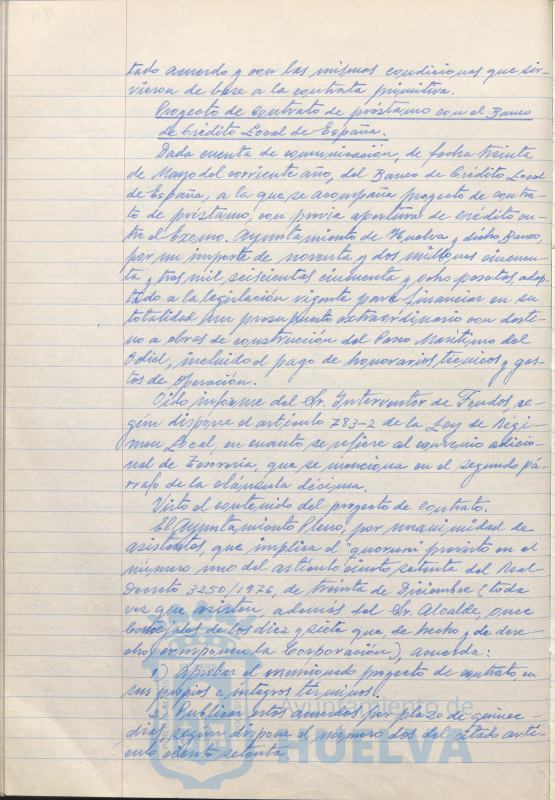 tado acuerdo y con las mismas condiciones que sir-
vieron de base a la contrata primitiva.
Proyecto de Contrato de préstamo con el Banco
de Crédito Local de España.
Dada cuenta de comunicación, de fecha treinta
de Mayo del corriente año, del Banco de Crédito Local
de España, a la que se acompaña proyecto de contra-
to de préstamo, con previa apertura de crédito en-
tre el Excmo. Ayuntamiento de Huelva y dicho Banco,
por un importe de noventa y dos millones cincuen-
ta y tres mil seiscientas cincuenta y ocho pesetas, adap-
tado a la legislación vigente para financiar en su
totalidad un presupuesto extraordinario con desti-
no a obras de construcción del Paseo Marítimo del
Odiel, incluido el pago de honorarios técnicos y gas-
tos de operación.
Oído informe del Sr. Interventor de Fondos, se-
gún dispone el artículo 783-2 de la Ley de Régi-
men Local, en cuanto se refiere al convenio adicio-
nal de Tesorería, que se menciona en el segundo pá-
rrafo de la cláusula décima.
Visto el contenido del proyecto de contrato.
El Ayuntamiento Pleno, por unanimidad de
asistentes, que implica el "quorum" previsto en el
número uno del artículo ciento setenta del Real
Decreto 3250/1976, de treinta de Diciembre (toda
vez que asisten, además del Sr. Alcalde, once
Concejales de los diez y siete que, de hecho y de dere-
cho, componen la Corporación), acuerda:
1.) Aprobar el mencionado proyecto de contrato, en
sus propios e íntegros términos.
2.) Publicar estos acuerdos por plazo de quince
días, según dispone el número dos del citado artí-
culo ciento setenta.
Ayuntamiento de
HUELVA